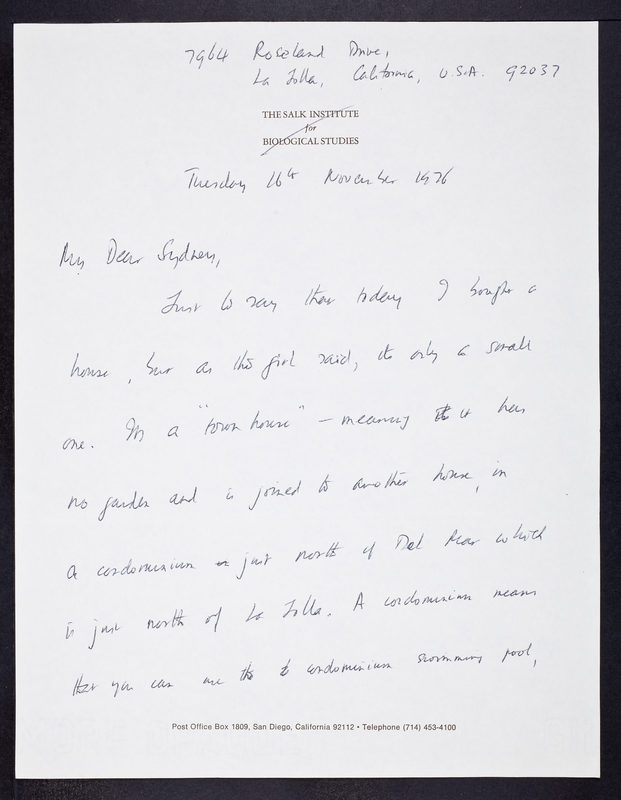 7964 Roseland Drive,
La Jolla, California, U.S.A. 92037
THE SALK INSTITUTE
for
BIOLOGICAL STUDIES
Tuesday 16th November 1976
My Dear Sydney,
Just to say that today I bought a
house, but as the girl said, its only a small
one. Its a "town house" — meaning it has
no garden and is joined to another house, in
a condominium just north of Del Mar which
is just north of La Jolla. A condominium means
that you can use the condominium swimming pool,
Post Office Box 1809, San Diego, California 92112 • Telephone (714) 453-4100